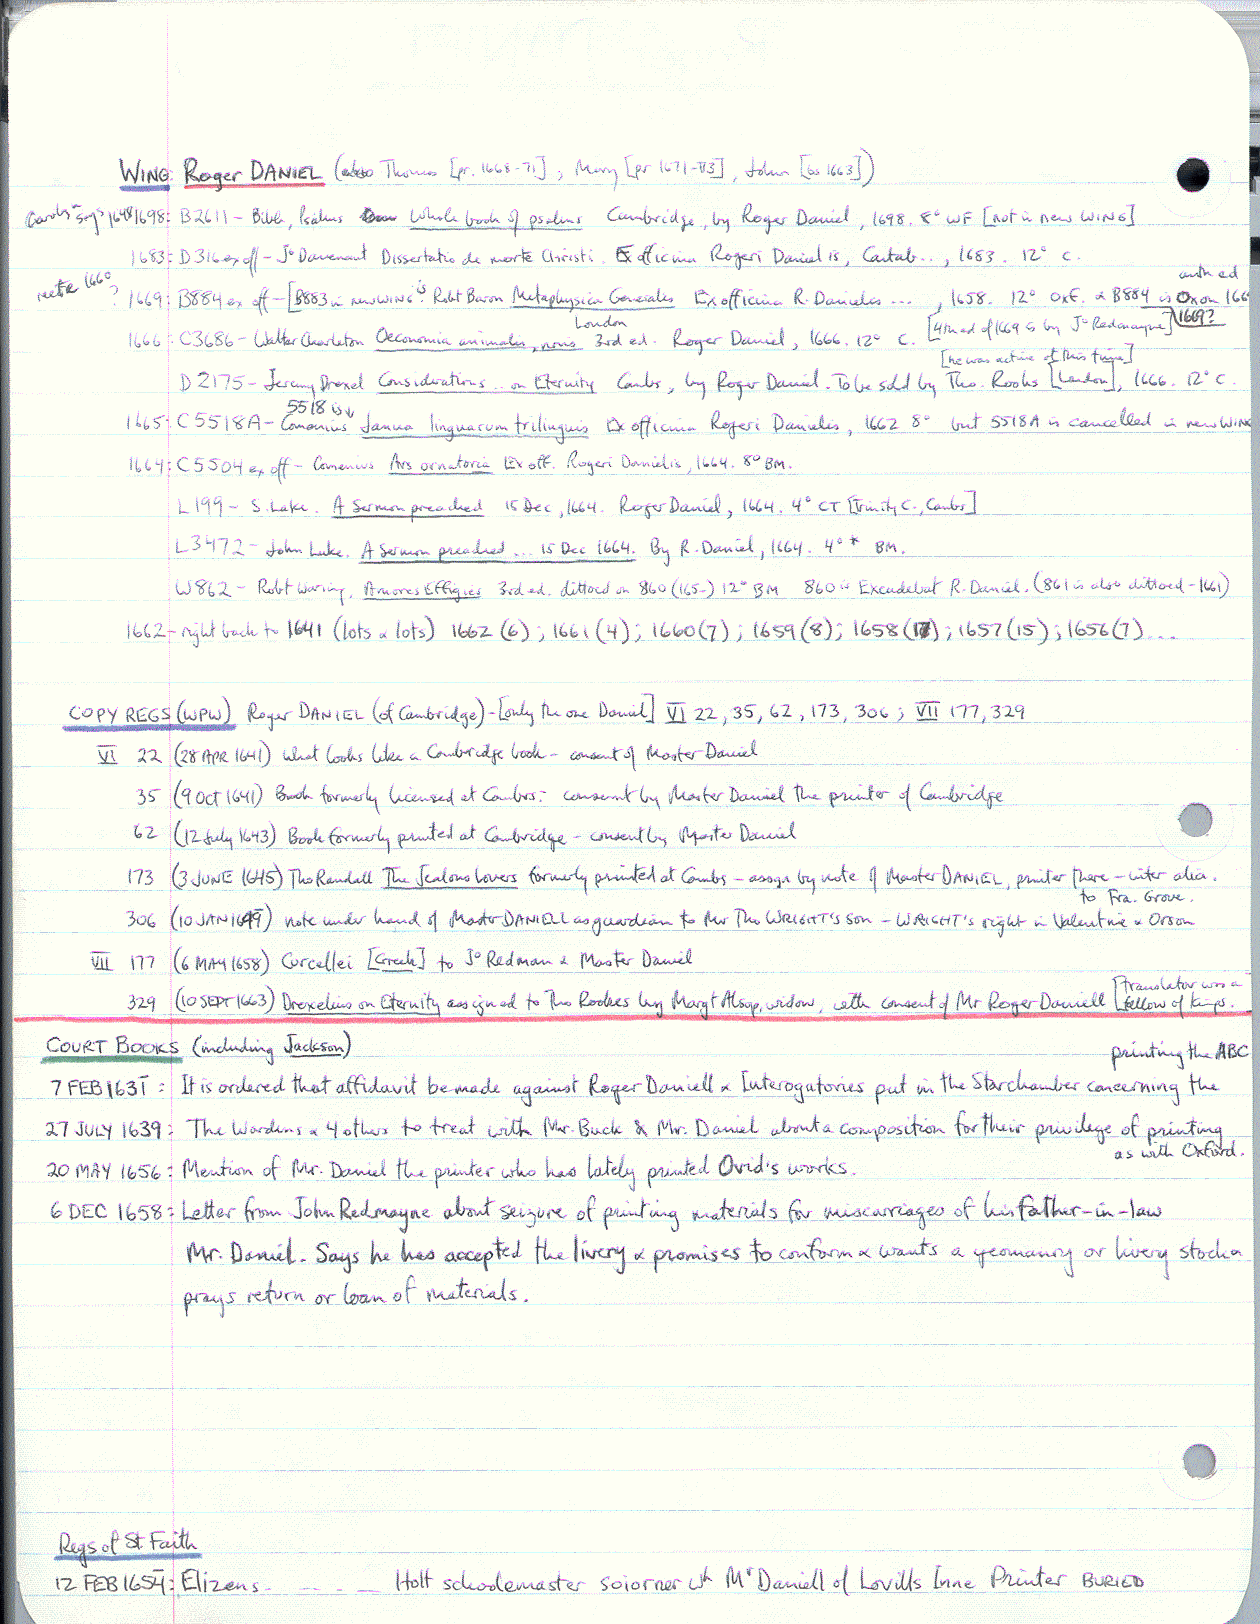 WING: Roger DANIEL (also Thomas [pr. 1668-71], Mary [pr 1671-713], John [bs 1663])
Cards says 1648 1698: B2611 - Bible, Psalms Whole book of psalms Cambridge, by Roger Daniel, 1698. 8° WF [not in new WING]
1683: D316 ex off - Jo Davenant Dissertatio de morte Christi. Ex officina Rogeri Danielis, Cantab..., 1683. 12° C.
recte 1660? anr ed
1669: B884 ex off - [B883 in new WING is Robt Baron Metaphysica Generales Ex officina R. Danielis ... , 1658. 12° OXF. & B884 is Oxon 166
London [4th ed of 1669 is by Jo Redmayne] 1669?
1666: C3686 - Walter Charleton Oeconomia animalis, novis 3rd ed. Roger Daniel, 1666. 12° C.
[he was active at this time]
D2175 - Jeremy Drexel Considerations .. on Eternity Cambs, by Roger Daniel. To be sold by Tho. Rooks [London], 1666. 12° C.
5518 is
1665: C5518A - Comenius Janua linguarum trilinguis Ex officina Rogeri Danielis, 1662 8° but 5518A is cancelled in new WING
1664: C5504 ex off - Comenius Ars ornatoria Ex off. Rogeri Danielis, 1664. 8° BM.
L199 - S. Lake. A Sermon preached 15 Dec, 1664. Roger Daniel, 1664. 4° CT [Trinity C., Cambs]
L3472 - John Luke. A Sermon preached ... 15 Dec 1664. By R. Daniel, 1664. 4° * BM.
W862 - Robt Waring, Amores Effigies 3rd ed. dittoed on 860 (165-) 12° BM 860 is Excudebat R. Daniel. (861 is also dittoed - 1661)
1662 - right back to 1641 (lots & lots) 1662 (6); 1661 (4); 1660 (7); 1659 (8); 1658 (17); 1657 (15); 1656 (7) ...
COPY REGS (WPW) Roger DANIEL (of Cambridge) - [only the one Daniel] VI 22, 35, 62, 173, 306; VII 177, 329
VI 22 (28 APR 1641) what looks like a Cambridge book - consent of Master Daniel
35 (9 Oct 1641) Book formerly licensed at Cambs: - consent by Master Daniel the printer of Cambridge
62 (12 July 1643) Book formerly printed at Cambridge - consent by Master Daniel
173 (3 JUNE 1645) Tho Randall The Jealous Lovers formerly printed at Cambs - assign by note of Master DANIEL, printer there - inter alia.
to Fra. Grove.
306 (10 JAN 1649) note under hand of Master DANIELL as guardian to Mr Tho WRIGHT's son - WRIGHT's right in Valentine & Orson
VII 177 (6 MAY 1658) Curcellei [Greek] to Jo Redman & Master Daniel
329 (10 SEPT 1663) Drexelius on Eternity assigned to Tho Rookes by Margt Alsop, widow, with consent of Mr Roger Daniell [translator was a fellow of Kings.
COURT BOOKS (including Jackson)
printing the ABC
7 FEB 1631: It is ordered that affidavit be made against Roger Daniell & Interogatories put in the Starchamber concerning the
27 JULY 1639: The Wardens & 4 others to treat with Mr. Buck & Mr. Daniel about a composition for their privilege of printing
as with Oxford.
20 MAY 1656: Mention of Mr. Daniel the printer who has lately printed Ovid's works.
6 DEC 1658: Letter from John Redmayne about seizure of printing materials for miscarriages of his father-in-law
Mr. Daniel. Says he has accepted the livery & promises to conform & wants a yeomanry or livery stock &
prays return or loan of materials.
Regs of St Faith
12 FEB 1654: Elizens - - - - Holt schoolemaster soiorner wh Mr Daniell of Lovills Inne Printer BURIED